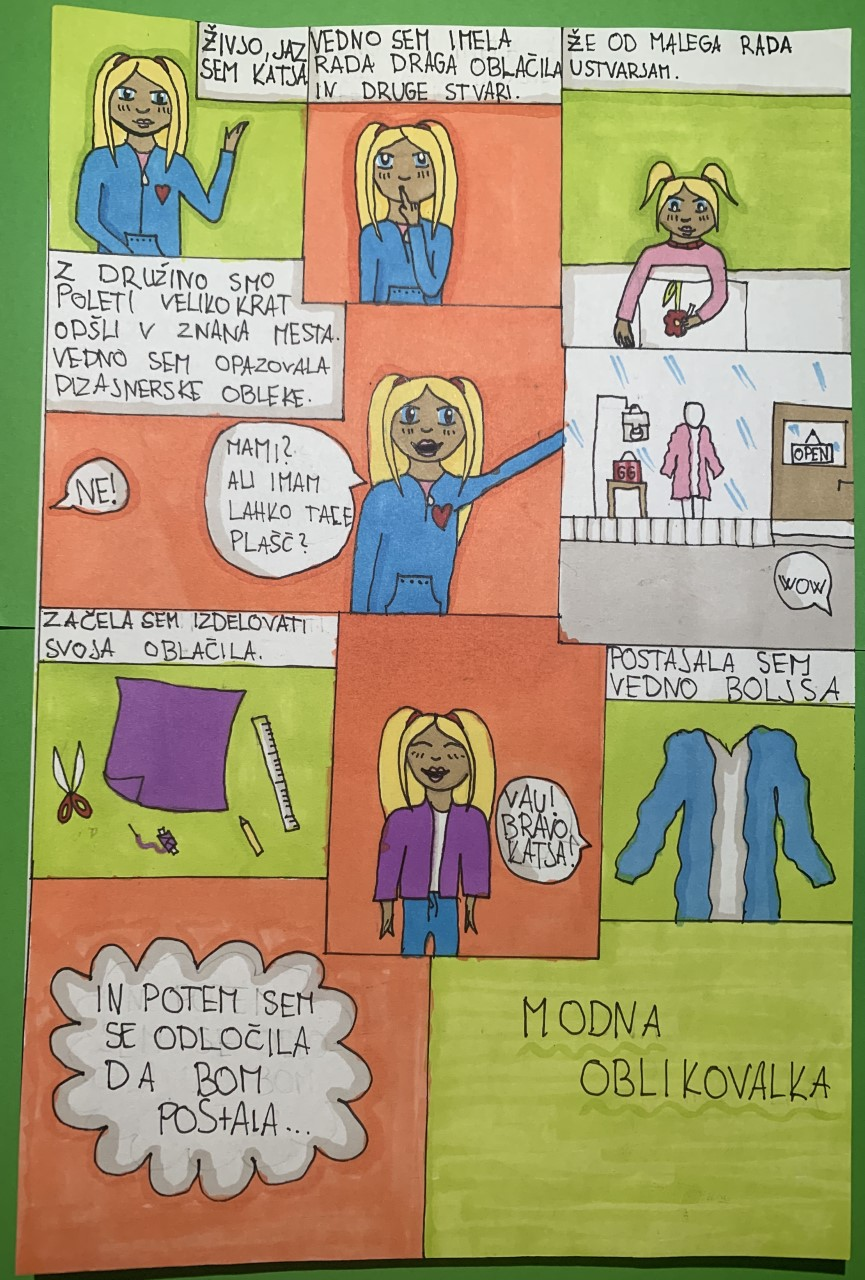 ŽIVJO, JAZ
SEM KATJA
VEDNO SEM IMELA
RADA DRAGA OBLAČILA
IN DRUGE STVARI.
ŽE OD MALEGA RADA
USTVARJAM.
Z DRUŽINO SMO
POLETI VELIKOKRAT
ODŠLI V ZNANA MESTA.
VEDNO SEM OPAZOVALA
DIZAJNERSKE OBLEKE.
NE!
MAMI?
ALI IMAM
LAHKO TAEE
PLAŠČ?
OPEN
GG
WOW
ZAČELA SEM IZDELOVATI
SVOJA OBLAČILA.
VAU!
BRAVO,
KATJA!
POSTAJALA SEM
VEDNO BOLJŠA
IN POTEM SEM
SE ODLOČILA
DA BOM
POSTALA...
MODNA
OBLIKOVALKA